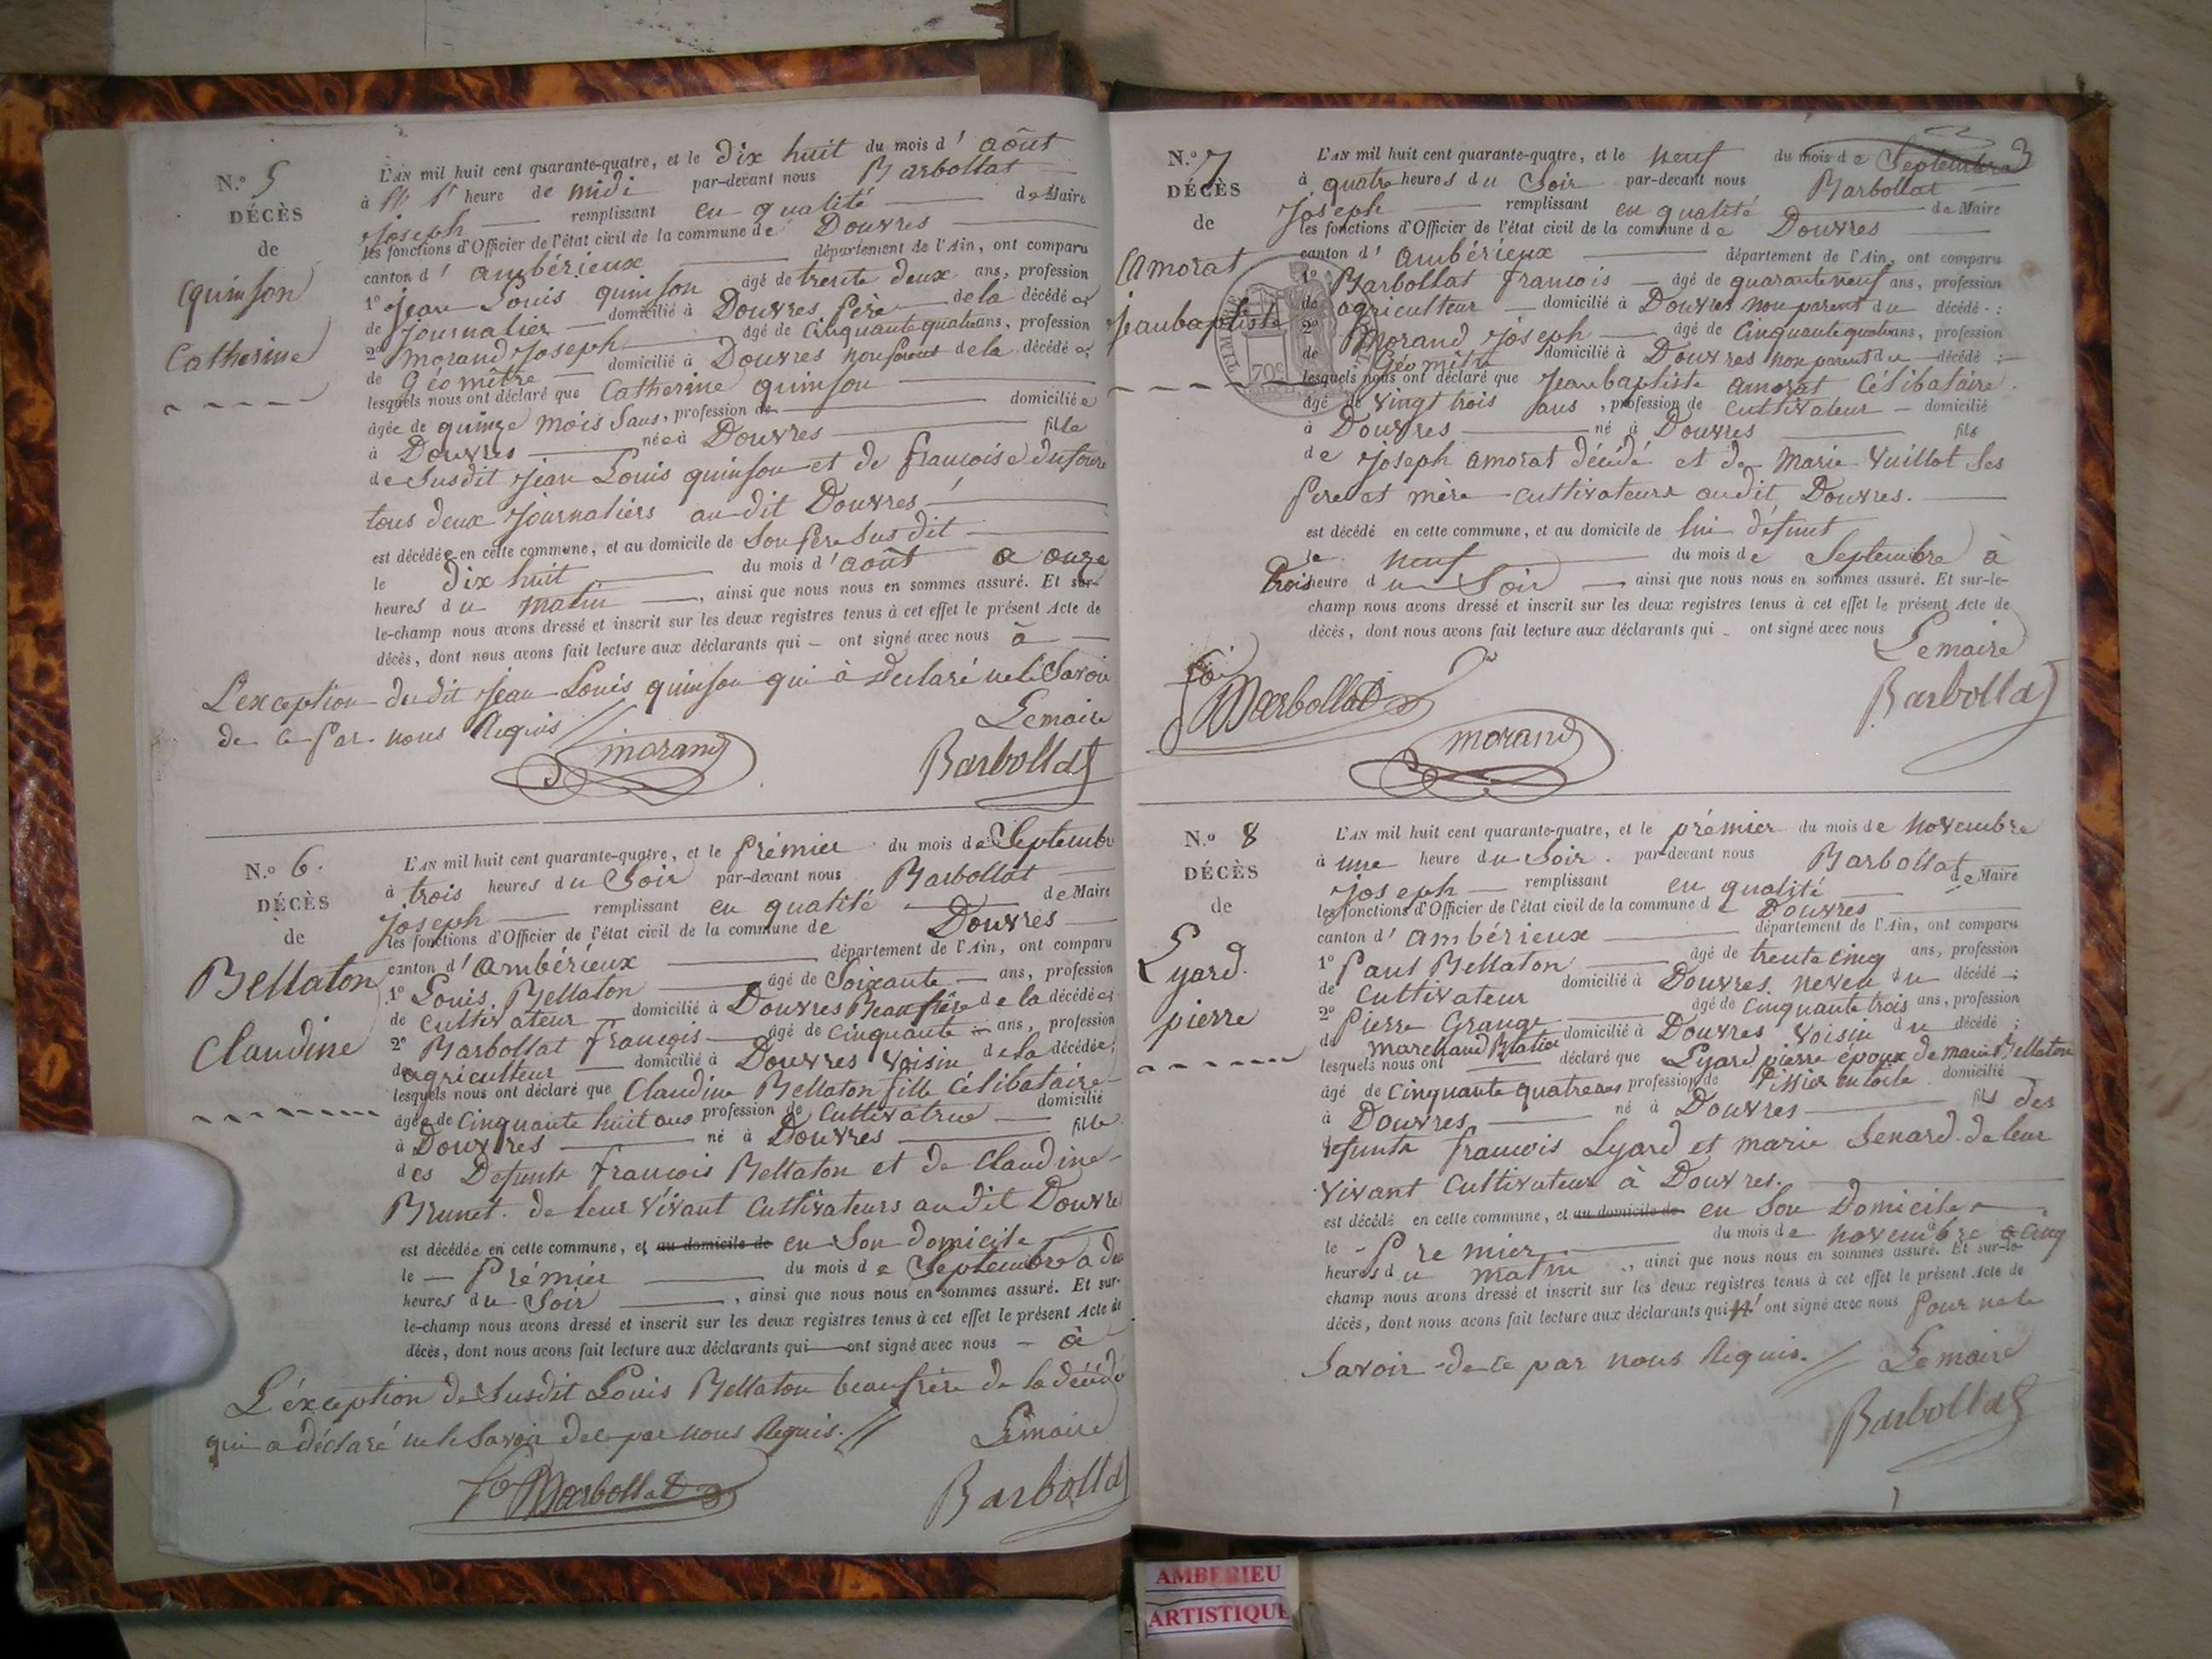 N.º 5
DÉCÈS
de
quinson
Catherine
L'AN mil huit cent quarante-quatre, et le dix huit du mois d' Aôut
à heure de midi par-devant nous Barbollat
Joseph remplissant en qualité de Maire
les fonctions d'Officier de l'état civil de la commune de Douvres
canton d' ambérieux département de l'Ain, ont comparu
1º jean Louis quinson âgé de trente deux ans, profession
de journalier domicilié à Douvres père de la décédée
2º morand Joseph âgé de Cinquante quatre ans, profession
de Géomètre domicilié à Douvres non parent de la décédée
lesquels nous ont déclaré que Catherine quinson
âgée de quinze mois Sans, profession de domiciliée
à Douvres née à Douvres fille
de Susdit jean Louis quinson et de francoise dufour
tous deux journaliers au dit Douvres
est décédée en cette commune, et au domicile de Son père Sus dit
le dix huit du mois d' août a onze
heures du matin, ainsi que nous nous en sommes assuré. Et sur-
le-champ nous avons dressé et inscrit sur les deux registres tenus à cet effet le présent Acte de
décès, dont nous avons fait lecture aux déclarants qui ont signé avec nous à
L'exception du dit jean Louis quinson qui à declaré ne le Savoir
de ce par nous Requis //
Lemaire
morand
Barbollat
N.º 6.
DÉCÈS
de
Bellaton
Claudine
L'AN mil huit cent quarante-quatre, et le prémier du mois de Septembre
à trois heures du Soir par-devant nous Barbollat
Joseph remplissant en qualité de Maire
les fonctions d'Officier de l'état civil de la commune de Douvres
canton d' Ambérieux département de l'Ain, ont comparu
1º Louis Bellaton âgé de Soixante ans, profession
de cultivateur domicilié à Douvres Beaufrère de la décédée
2º Barbollat françois âgé de cinquante ans, profession
de agriculteur domicilié à Douvres Voisin de la décédée;
lesquels nous ont déclaré que Claudine Bellaton fille Célibataire
âgée de Cinquante huit ans profession de Cultivatrice domicilié
à Douvres né à Douvres fille
des Defunts francois Bellaton et de Claudine
Brunet de leur Vivant Cultivateurs au dit Douvre
est décédée en cette commune, et au domicile de en Son domicile
le Prémier du mois de Septembre a deu
heures du Soir, ainsi que nous nous en sommes assuré. Et sur-
le-champ nous avons dressé et inscrit sur les deux registres tenus à cet effet le présent Acte de
décès, dont nous avons fait lecture aux déclarants qui ont signé avec nous à
L'éxception de Susdit Louis Bellaton beaufrère de la décédé
qui a déclaré ne le Savoir de ce par nous Requis. //
Lemaire
Barbollat
Barbollat
3
N.º 7
DÉCÈS
de
Amorat
jeanbaptiste
TIMBRE
70c
L'AN mil huit cent quarante-quatre, et le neuf du mois de Septembre
à quatre heures du Soir par-devant nous Barbollat
Joseph remplissant en qualité de Maire
les fonctions d'Officier de l'état civil de la commune de Douvres
canton d' Ambérieux département de l'Ain, ont comparu
1º Barbollat francois âgé de quaranteneuf ans, profession
de agriculteur domicilié à Douvres non parent du décédé
2º Morand Joseph âgé de Cinquante quatre ans, profession
de Géomètre domicilié à Douvres non parent du décédé;
lesquels nous ont déclaré que Jeanbaptiste amorat Célibataire
âgé de vingt trois ans, profession de cultivateur domicilié
à Douvres né à Douvres fils
de Joseph amorat décédé et de Marie Vuillot Ses
pere et mère cultivateurs au dit Douvres.
est décédé en cette commune, et au domicile de lui défunt
le neuf du mois de Septembre à
trois heure du Soir ainsi que nous nous en sommes assuré. Et sur-le-
champ nous avons dressé et inscrit sur les deux registres tenus à cet effet le présent Acte de
décès, dont nous avons fait lecture aux déclarants qui ont signé avec nous
Lemaire
Barbollat
morand
Barbollat
N.º 8
DÉCÈS
de
Lyard.
pierre
L'AN mil huit cent quarante-quatre, et le prémier du mois de novembre
à une heure du Soir. par-devant nous Barbollat
Joseph remplissant en qualité de Maire
les fonctions d'Officier de l'état civil de la commune de Douvres
canton d' ambérieux département de l'Ain, ont comparu
1º Paul Bellaton âgé de trente cinq ans, profession
de Cultivateur domicilié à Douvres neveu du décédé;
2º Pierre Grange âgé de cinquante trois ans, profession
de marchand domicilié à Douvres Voisin du décédé;
lesquels nous ont déclaré que Lyard pierre époux de marie Bellaton
âgé de cinquante quatre ans profession de Tissier en toile domicilié
à Douvres né à Douvres fils des
défunts francois Lyard et marie Senard de leur
Vivant Cultivateurs à Douvres.
est décédé en cette commune, et au domicile de en Son Domicile
le Premier du mois de novembre à cinq
heures du matin, ainsi que nous nous en sommes assuré. Et sur-le-
champ nous avons dressé et inscrit sur les deux registres tenus à cet effet le présent Acte de
décès, dont nous avons fait lecture aux déclarants qui n' ont signé avec nous pour ne le
Savoir de ce par nous Requis. //
Lemaire
Barbollat
AMBERIEU
ARTISTIQUE